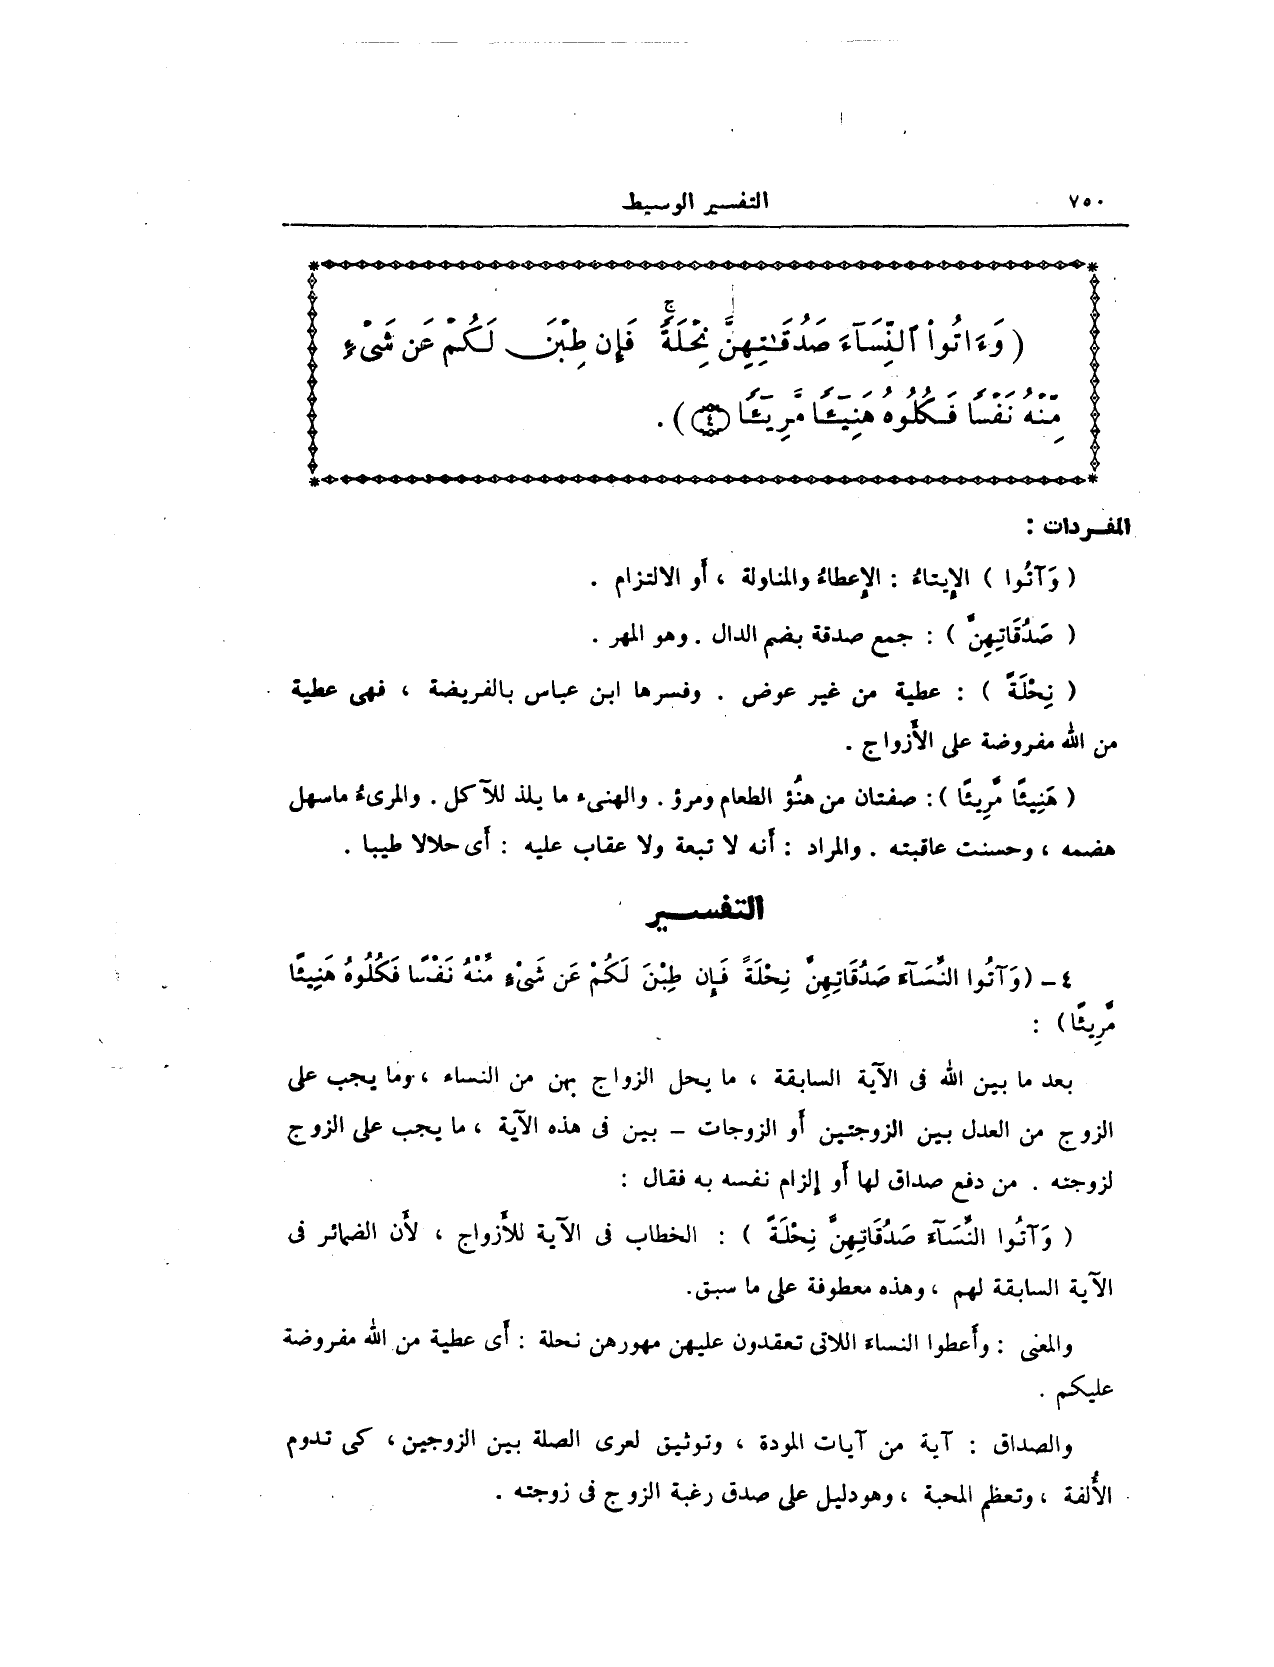 ٧٥٠
التفسير الوسيط
( وَءَاتُوا۟ ٱلنِّسَآءَ صَدُقَـٰتِهِنَّ نِحْلَةًۚ فَإِن طِبْنَ لَكُمْ عَن شَىْءٍ
مِّنْهُ نَفْسًا فَكُلُوهُ هَنِيٓـًٔا مَّرِيٓـًٔا (٤) ) .
المفـردات :
( وَآتُوا ) الإِيتاءُ : الإِعطاءُ والمناولة ، أَو الالتزام .
( صَدُقَاتِهِنَّ ) : جمع صدقة بضم الدال . وهو المهر .
( نِحْلَةً ) : عطية من غير عوض . وفسرها ابن عباس بالفريضة ، فهى عطية
من الله مفروضة على الأَزواج .
( هَنِيئًا مَّرِيئًا ) : صفتان من هنُؤ الطعام ومرؤ . والهنىء ما يلذ للآكل . والمرىءُ ماسهل
هضمه ، وحسنت عاقبته . والمراد : أَنه لا تبعة ولا عقاب عليه : أَى حلالا طيبا .
التفســير
٤ – (وَآتُوا النِّسَآءَ صَدُقَاتِهِنَّ نِحْلَةً فَإِن طِبْنَ لَكُمْ عَن شَىْءٍ مِّنْهُ نَفْسًا فَكُلُوهُ هَنِيئًا
مَّرِيئًا) :
بعد ما بين الله فى الآية السابقة ، ما يحل الزواج بهن من النساء ، وما يجب على
الزوج من العدل بين الزوجتين أَو الزوجات – بين فى هذه الآية ، ما يجب على الزوج
لزوجته . من دفع صداق لها أَو إلزام نفسه به فقال :
( وَآتُوا النِّسَآءَ صَدُقَاتِهِنَّ نِحْلَةً ) : الخطاب فى الآية للأَزواج ، لأَن الضمائر فى
الآية السابقة لهم ، وهذه معطوفة على ما سبق.
والمعنى : وأَعطوا النساءَ اللاتى تعقدون عليهن مهورهن نحلة : أَى عطية من الله مفروضة
عليكم .
والصداق : آية من آيات المودة ، وتوثيق لعرى الصلة بين الزوجين ، كى تدوم
الأُلفة ، وتعظم المحبة ، وهو دليل على صدق رغبة الزوج فى زوجته .